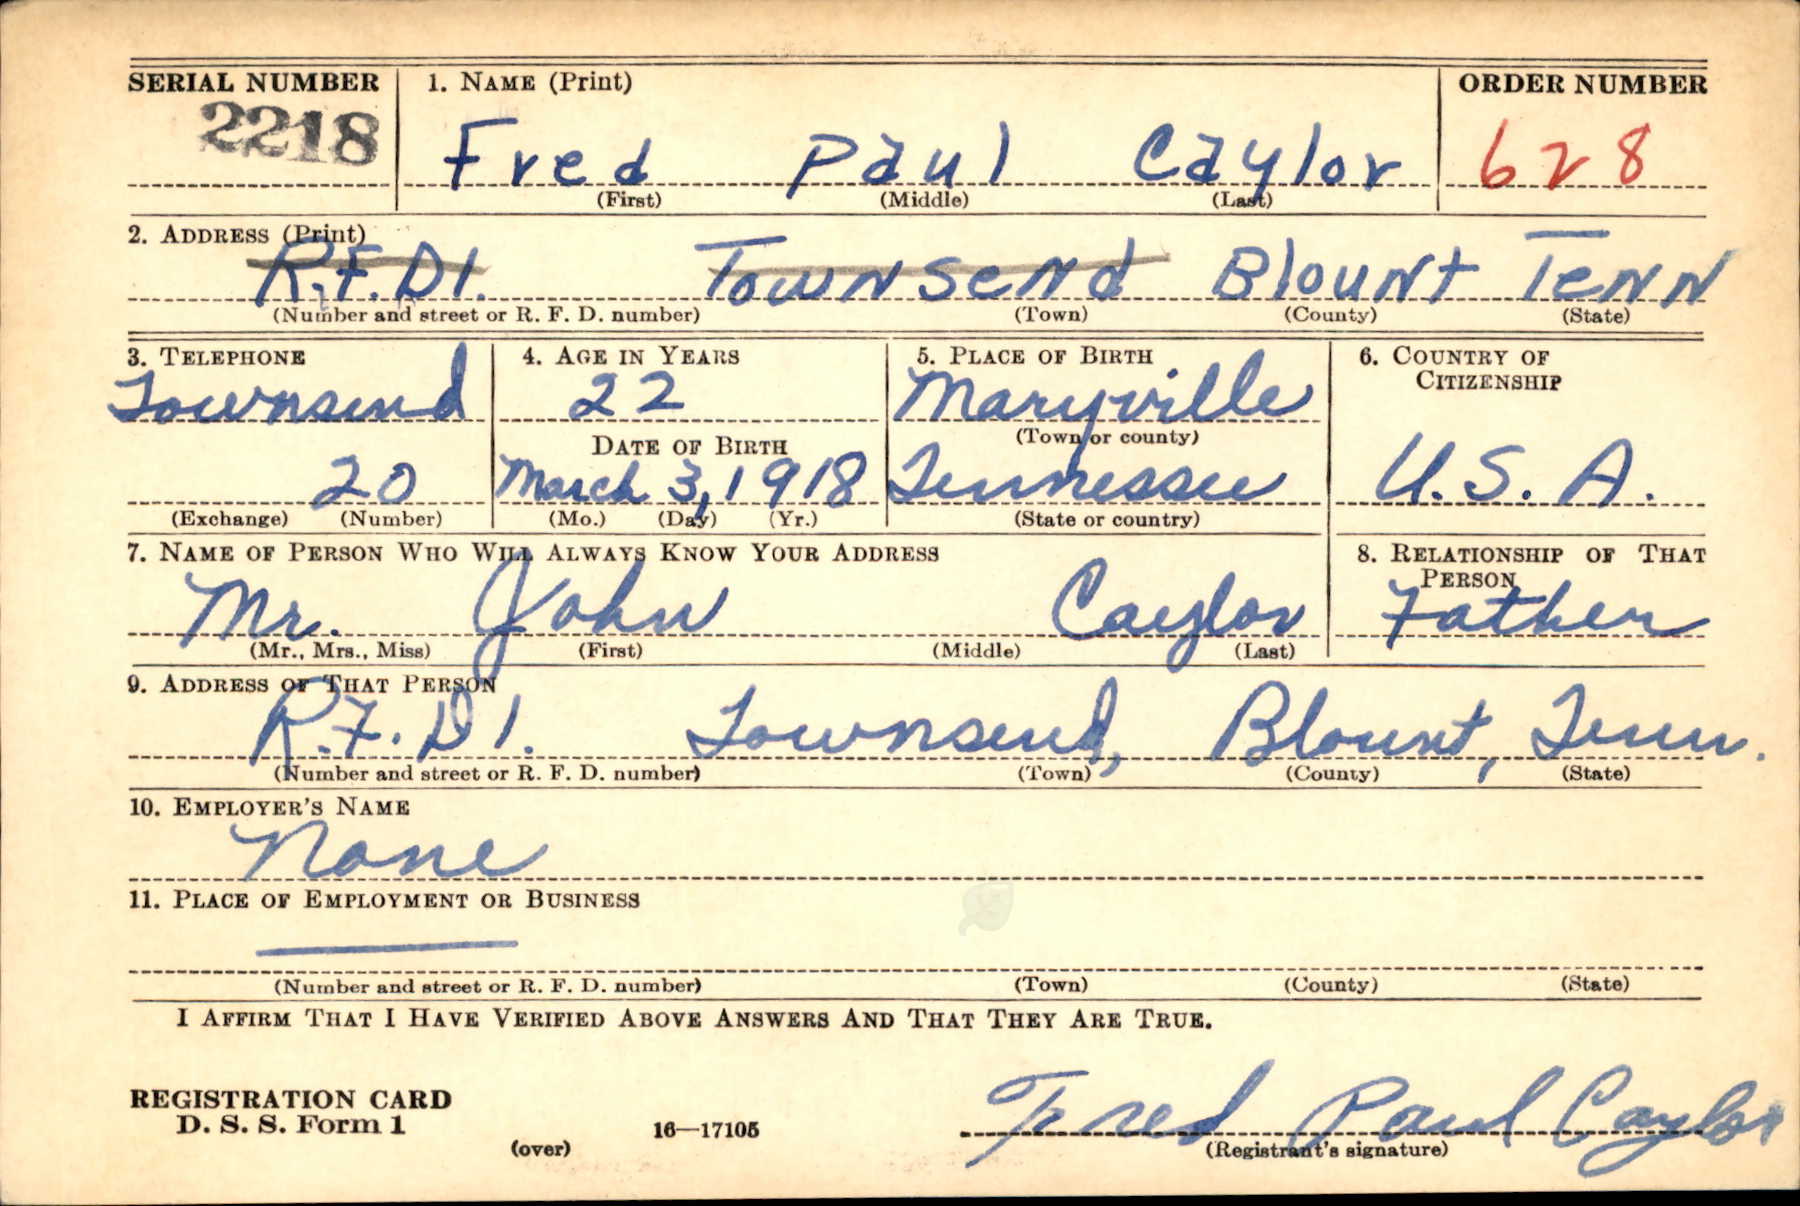 SERIAL NUMBER 1. NAME (Print) ORDER NUMBER
2218 Fred Paul Caylor 628
(First) (Middle) (Last)
2. ADDRESS (Print)
R.F.D1. Townsend Blount Tenn
(Number and street or R. F. D. number) (Town) (County) (State)
3. TELEPHONE 4. AGE IN YEARS 5. PLACE OF BIRTH 6. COUNTRY OF CITIZENSHIP
Townsend 22 Maryville
DATE OF BIRTH (Town or county)
20 March 3, 1918 Tennessee U.S.A.
(Exchange) (Number) (Mo.) (Day) (Yr.) (State or country)
7. NAME OF PERSON WHO WILL ALWAYS KNOW YOUR ADDRESS 8. RELATIONSHIP OF THAT PERSON
Mr. John Caylor Father
(Mr., Mrs., Miss) (First) (Middle) (Last)
9. ADDRESS OF THAT PERSON
R.F.D1. Townsend, Blount, Tenn.
(Number and street or R. F. D. number) (Town) (County) (State)
10. EMPLOYER'S NAME
None
11. PLACE OF EMPLOYMENT OR BUSINESS
(Number and street or R. F. D. number) (Town) (County) (State)
I AFFIRM THAT I HAVE VERIFIED ABOVE ANSWERS AND THAT THEY ARE TRUE.
REGISTRATION CARD
D. S. S. Form 1 Fred Paul Caylor
(over) 16—17105 (Registrant's signature)